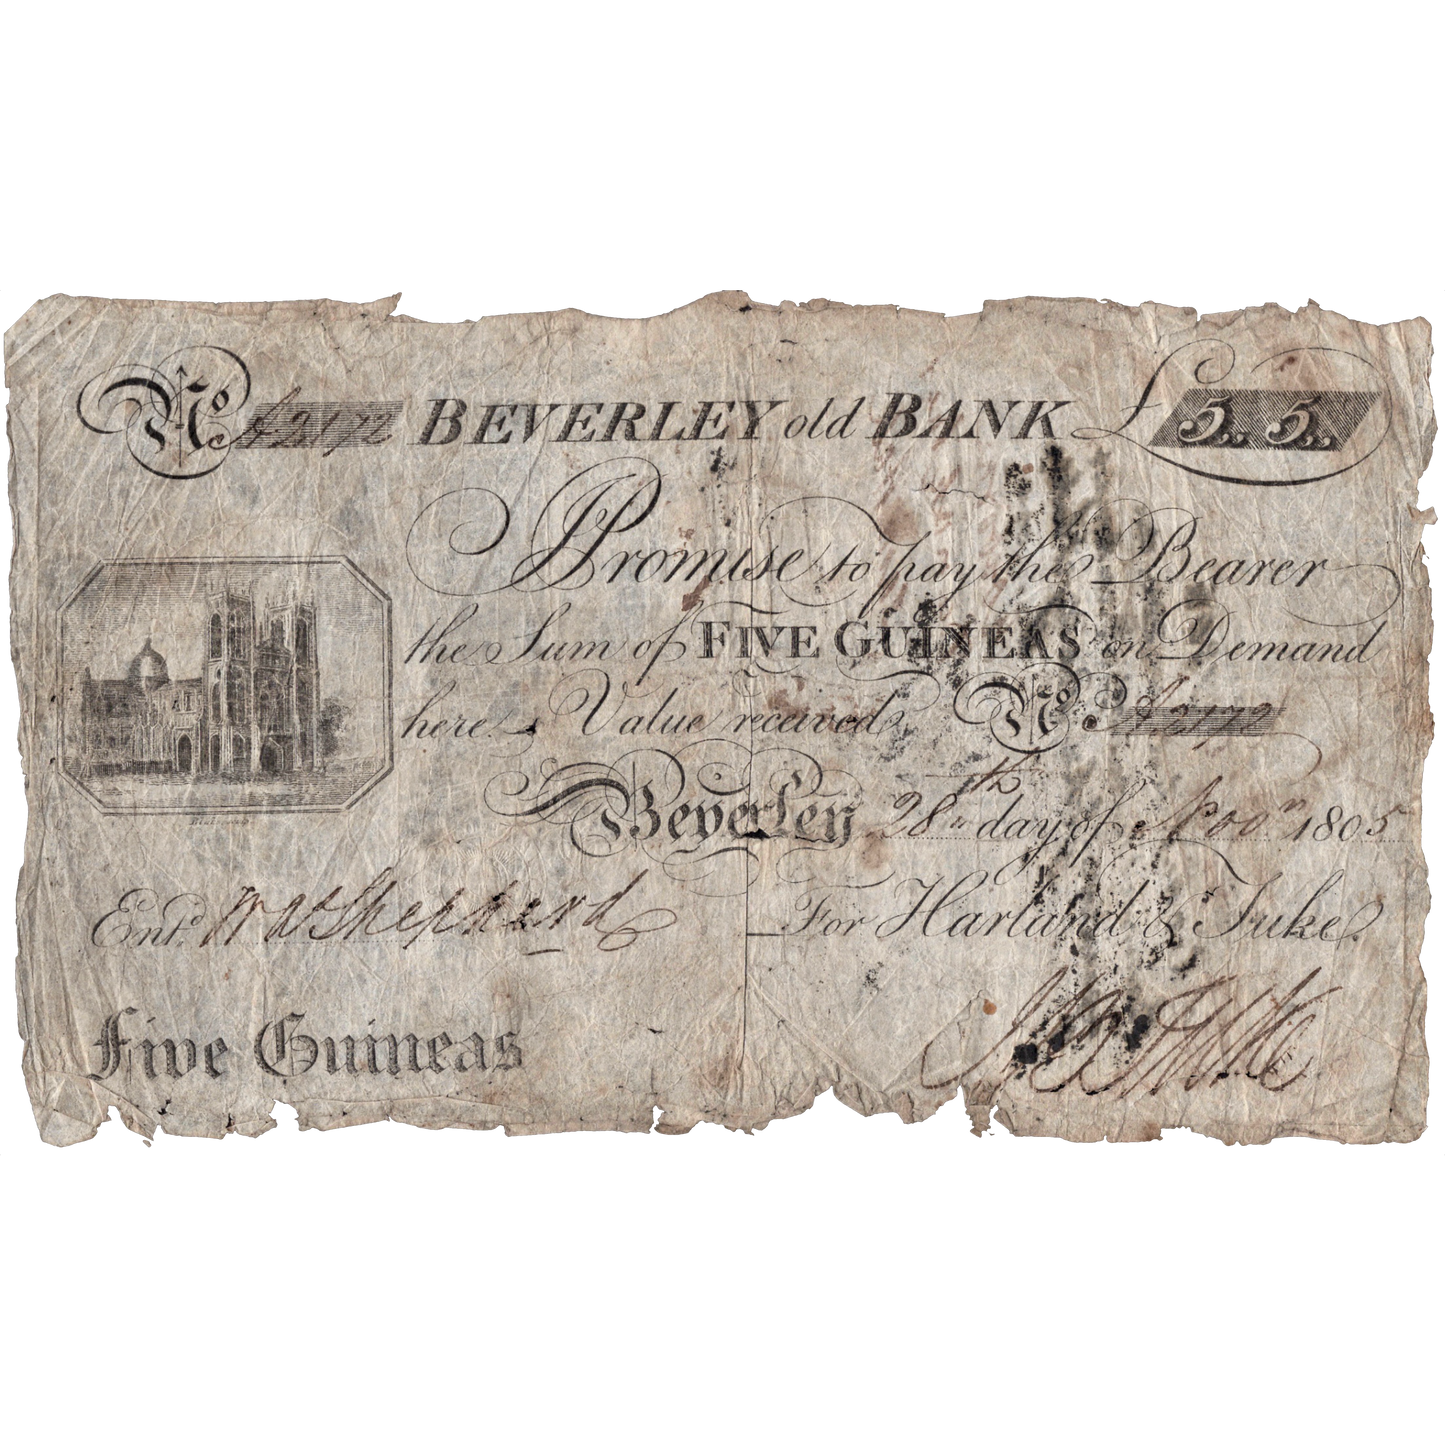 No A2172 BEVERLEY old BANK £5,, 5,,
I Promise to pay the Bearer
the Sum of FIVE GUINEAS on Demand
here Value received No. A2172
Beverley 28th day of Novr 1805
Entd. Wm Shepherd For Harland & Tuke.
Five Guineas